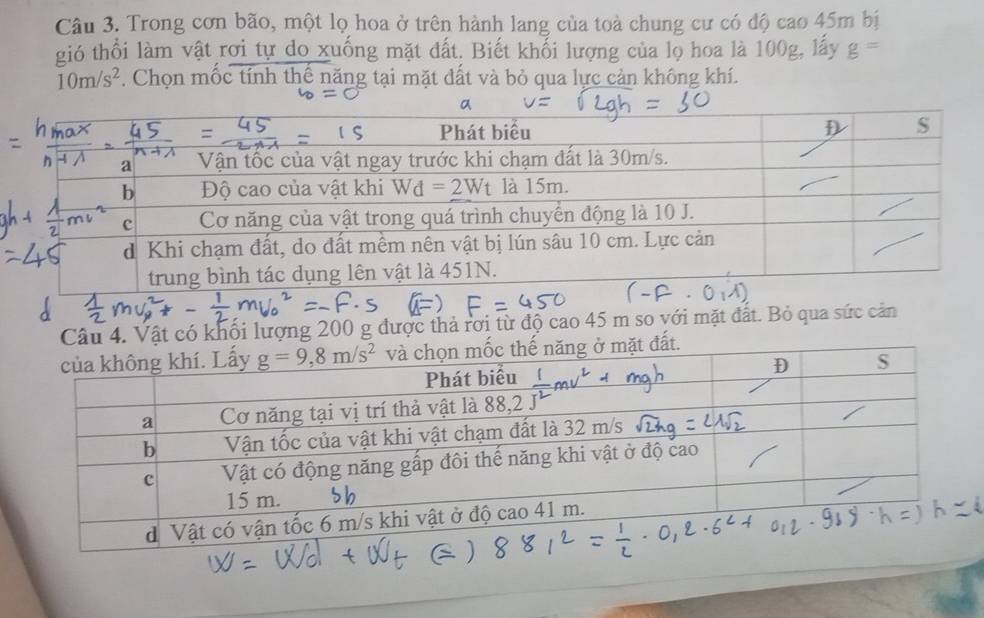 Câu 3. Trong cơn bão, một lọ hoa ở trên hành lang của toà chung cư có độ cao 45m bị
gió thổi làm vật rơi tự do xuống mặt đất. Biết khối lượng của lọ hoa là 100g, lấy g =
10m/s². Chọn mốc tính thế năng tại mặt đất và bỏ qua lực cản không khí.
v₀ = 0 a v = √2gh = 30
= hmax/n+1 = 45/n+1 = 45/2+1 = 15
Phát biểu Đ S
a Vận tốc của vật ngay trước khi chạm đất là 30m/s.
b Độ cao của vật khi Wđ = 2Wt là 15m.
gh + 1/2 mv²
c Cơ năng của vật trong quá trình chuyển động là 10 J.
= 45
d Khi chạm đất, do đất mềm nên vật bị lún sâu 10 cm. Lực cản
trung bình tác dụng lên vật là 451N.
d 1/2 mv² - 1/2 mv₀² = -F.s (=) F = 450 (-F . 0,1)
Câu 4. Vật có khối lượng 200 g được thả rơi từ độ cao 45 m so với mặt đất. Bỏ qua sức cản
của không khí. Lấy g = 9,8 m/s² và chọn mốc thế năng ở mặt đất.
Phát biểu 1/2 mv² + mgh Đ S
a Cơ năng tại vị trí thả vật là 88,2 J
b Vận tốc của vật khi vật chạm đất là 32 m/s √2hg = 21√2
c Vật có động năng gấp đôi thế năng khi vật ở độ cao
15 m.
d Vật có vận tốc 6 m/s khi vật ở độ cao 41 m.
W = Wđ + Wt (=) 88,2 = 1/2 . 0,2 . 6² + 0,2 . 9,8 . h =) h =